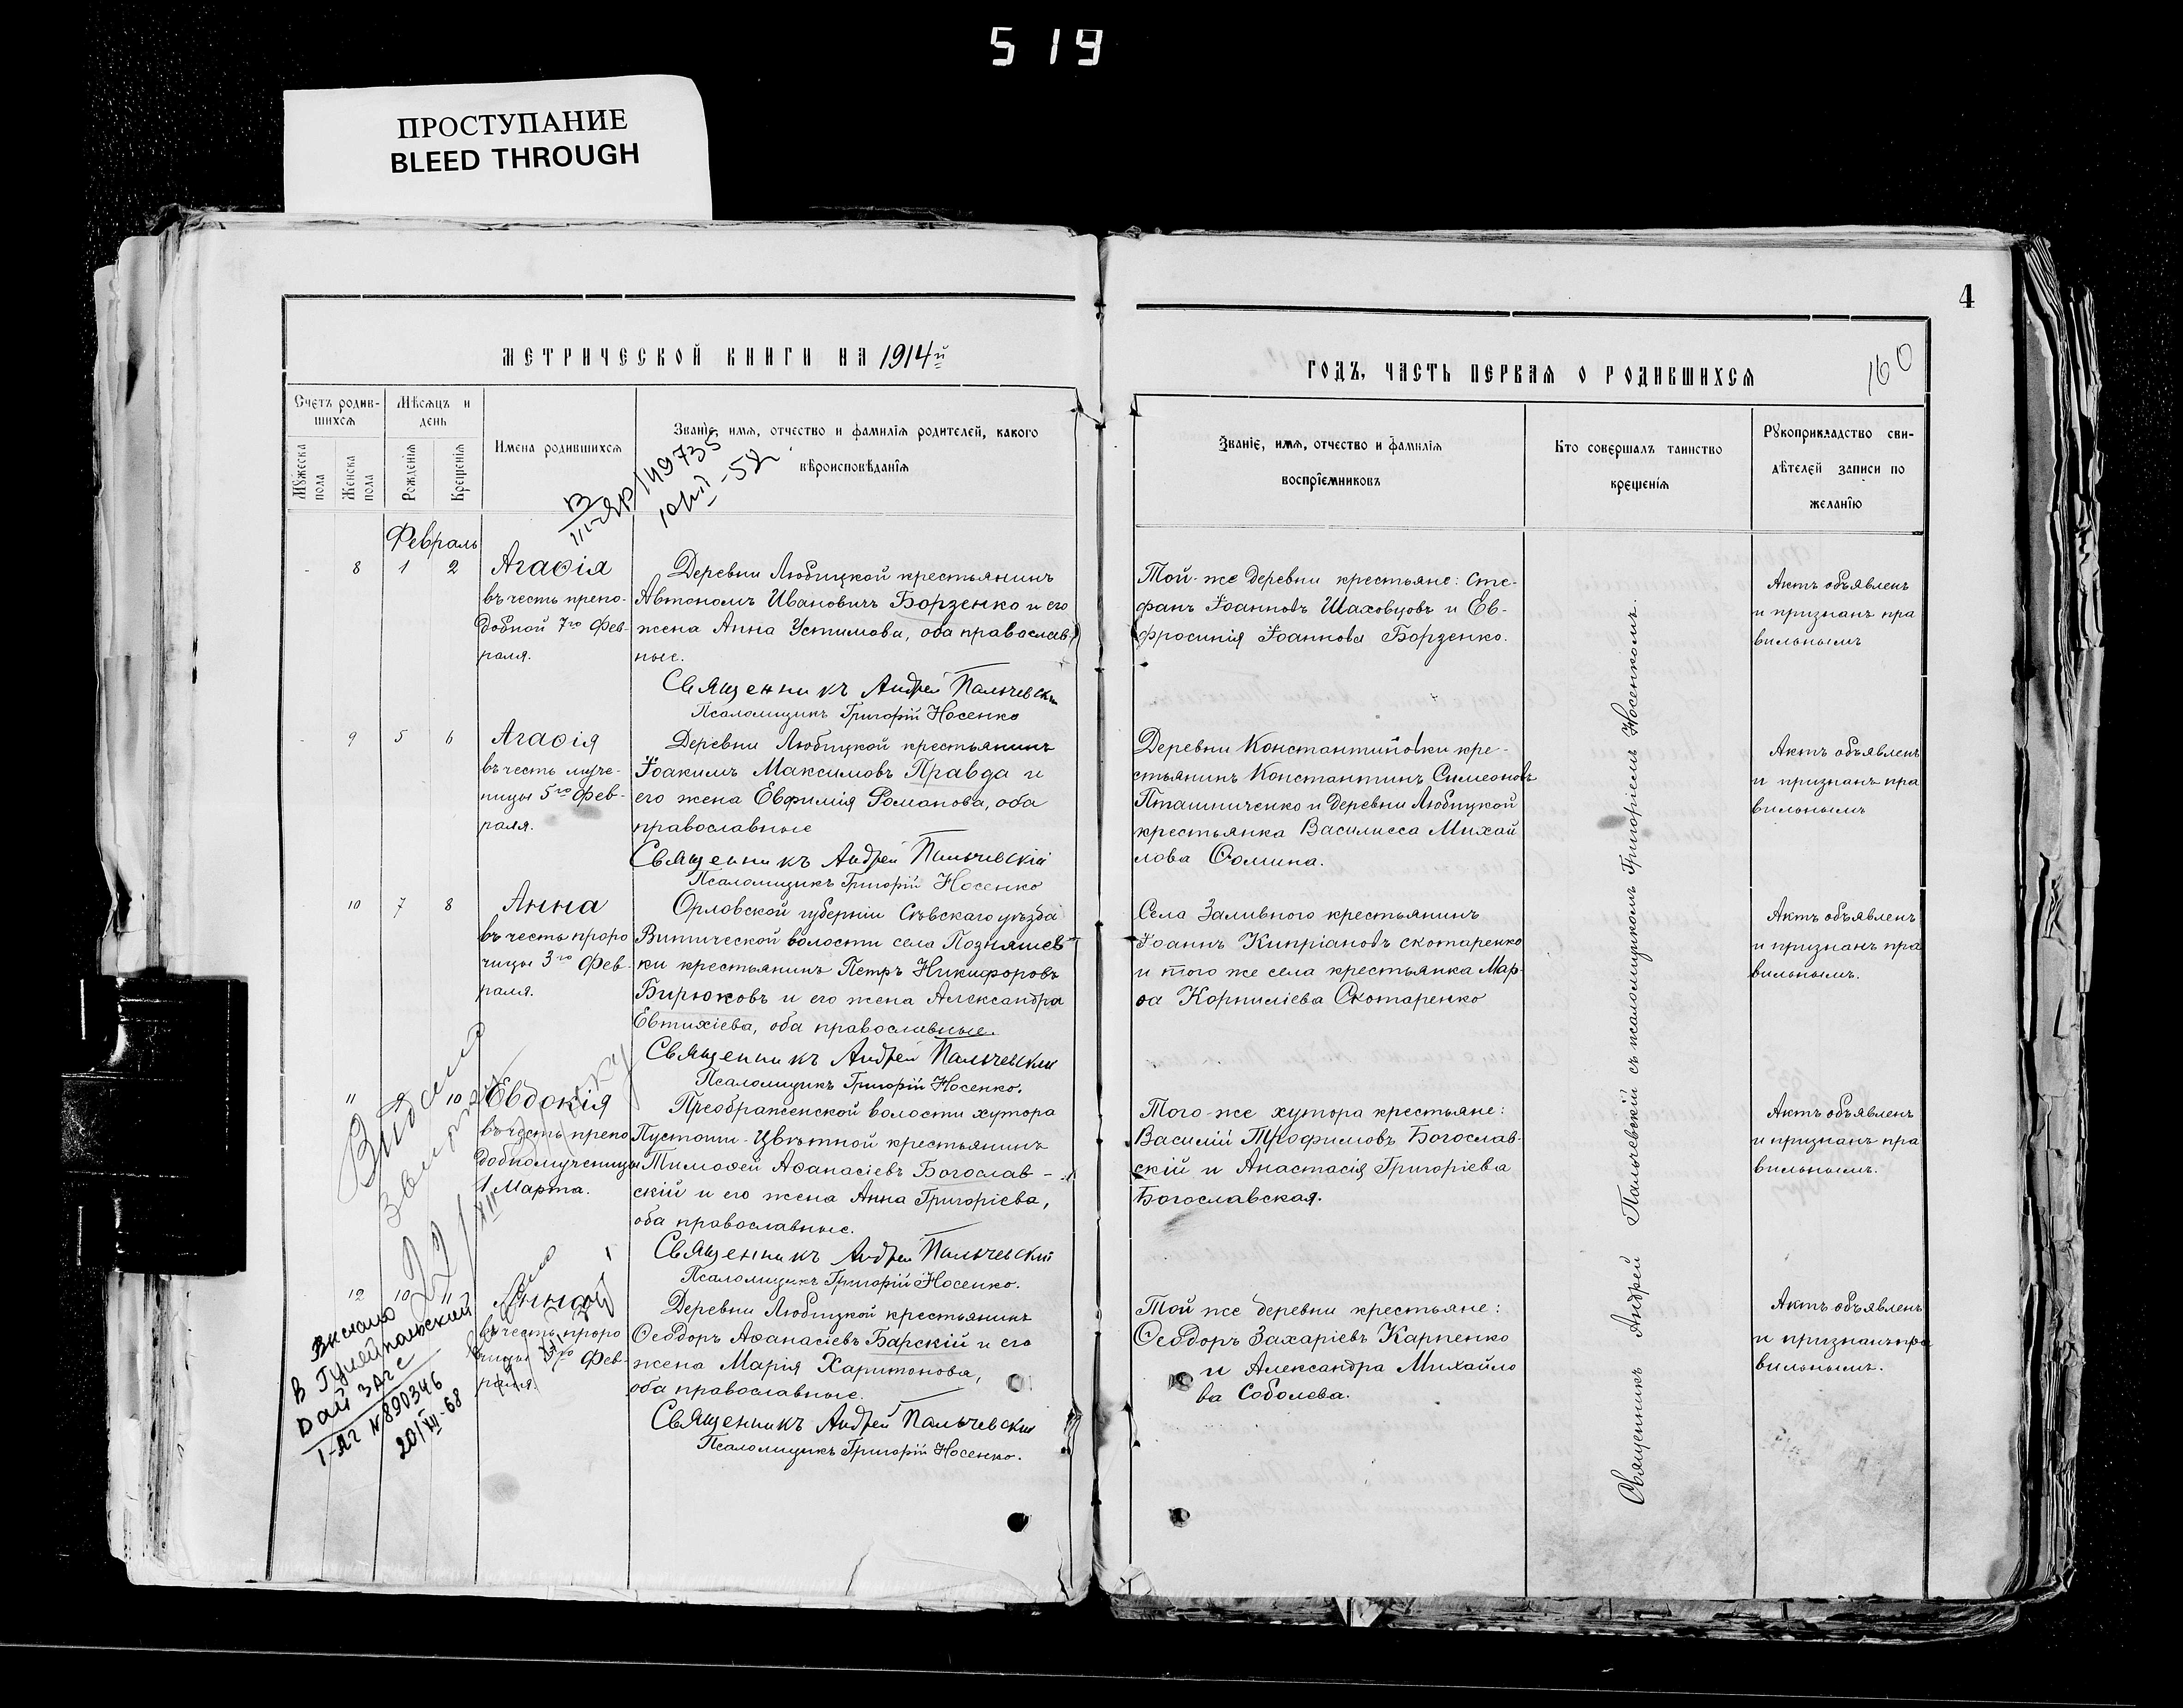 519
ПРОСТУПАНИЕ
BLEED THROUGH
4
160
МЕТРИЧЕСКОЙ КНИГИ НА 1914й
ГОДЪ, ЧАСТЬ ПЕРВАЯ О РОДИВШИХСЯ
Счетъ родив-
шихся
Мужеска
пола
Женска
пола
Мѣсяцъ и
день
Рожденія
Крещенія
Имена родившихся
Званіе, имя, отчество и фамилія родителей, какого
вѣроисповѣданія
Званіе, имя, отчество и фамилія
воспріемниковъ
Кто совершалъ таинство
крещенія
Рукоприкладство сви-
дѣтелей записи по
желанію
149735
Февраль
- 8 1 2
Агаѳія
въ честь препо-
добной 7го Фев-
раля.
Деревни Любицкой крестьянинъ
Автономъ Ивановичъ Борзенко и его
жена Анна Устимова, оба православ
ные.
Священникъ Андрей Пальчевскі
Псаломщикъ Григорій Носенко
Той-же деревни крестьяне: Сте-
фанъ Іоанновъ Шаховцовъ и Ев-
фросинія Іоаннова Борзенко.
Актъ объявленъ
и признанъ пра
вильнымъ
- 9 5 6
Агаѳія
въ честь муче-
ницы 5го Фев-
раля.
Деревни Любицкой крестьянинъ
Іоакимъ Максимовъ Правда и
его жена Евфимія Романова, оба
православные
Священникъ Андрей Пальчевскій
Псаломщикъ Григорій Носенко
Деревни Константиновки кре-
стьянинъ Константинъ Симеоновъ
Пташниченко и деревни Любицкой
крестьянка Василисса Михай
лова Ѳомина.
Актъ объявленъ
и признанъ пра
вильнымъ
- 10 7 8
Анна
въ честь проро
чицы 3го Фев-
раля.
Орловской губерніи Сѣвскаго уѣзда
Витической волости села Позняшев-
ки крестьянинъ Петръ Никифоровъ
Бирюковъ и его жена Александра
Евтихіева, оба православные.
Священникъ Андрей Пальчевскій
Псаломщикъ Григорій Носенко.
Села Заливного крестьянинъ
Іоаннъ Кипріановъ Скотаренко
и того же села крестьянка Мар-
ѳа Корниліева Скотаренко
Актъ объявленъ
и признанъ пра
вильнымъ.
11 9 10
Евдокія
въ честь препо
добномученицы
1 Марта.
Преображенской волости хутора
Пустоши-Цвѣтной крестьянинъ
Тимоѳей Аѳанасіевъ Богослав-
скій и его жена Анна Григоріева,
оба православные.
Священникъ Андрей Пальчевскій
Псаломщикъ Григорій Носенко.
Того-же хутора крестьяне:
Василій Трофимовъ Богослав-
скій и Анастасія Григоріева
Богославская.
Актъ объявленъ
и признанъ пра
вильнымъ.
12 10 11
Анна
въ честь проро
чицы 3го Фев-
раля.
Деревни Любицкой крестьянинъ
Ѳеодоръ Аѳанасіевъ Барскій и его
жена Марія Харитонова,
оба православные.
Священникъ Андрей Пальчевскій
Псаломщикъ Григорій Носенко.
Той же деревни крестьяне:
Ѳеодоръ Захаріевъ Карпенко
и Александра Михайло
ва Соболева.
Актъ объявленъ
и признанъ пра
вильнымъ.
Священникъ Андрей Пальчевскій съ псаломщикомъ Григоріемъ Носенкомъ.
Видано
в Гуляйпольский
рай ЗАГС
I-ЯГ №890346
20/VII-68